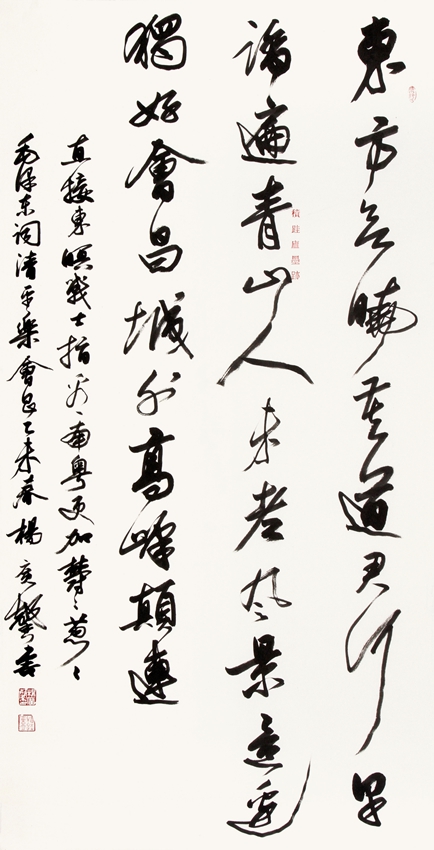 東方欲曉莫道君行早
踏遍青山人未老風景這邊
獨好會昌城外高峰顛連
直接東溟戰士指看南粵更加鬱鬱蔥蔥
毛澤東詞清平樂會昌乙未春楊書